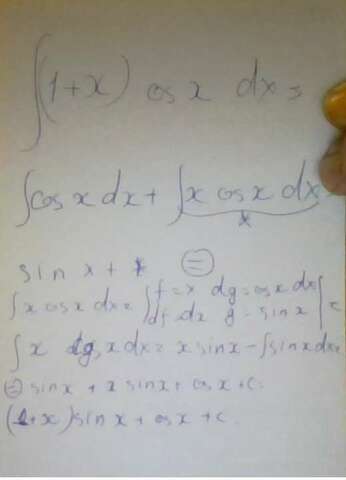 ∫(1+x) cos x dx =
∫cos x dx + ∫x cos x dx
*
sin x + * (=)
∫x cos x dx = | f = x dg = cos x dx
df = dx g = sin x | =
∫ x dg x dx = x sin x - ∫sin x dx =
(=) sin x + x sin x + cos x + c.
(1+x) sin x + cos x + c.